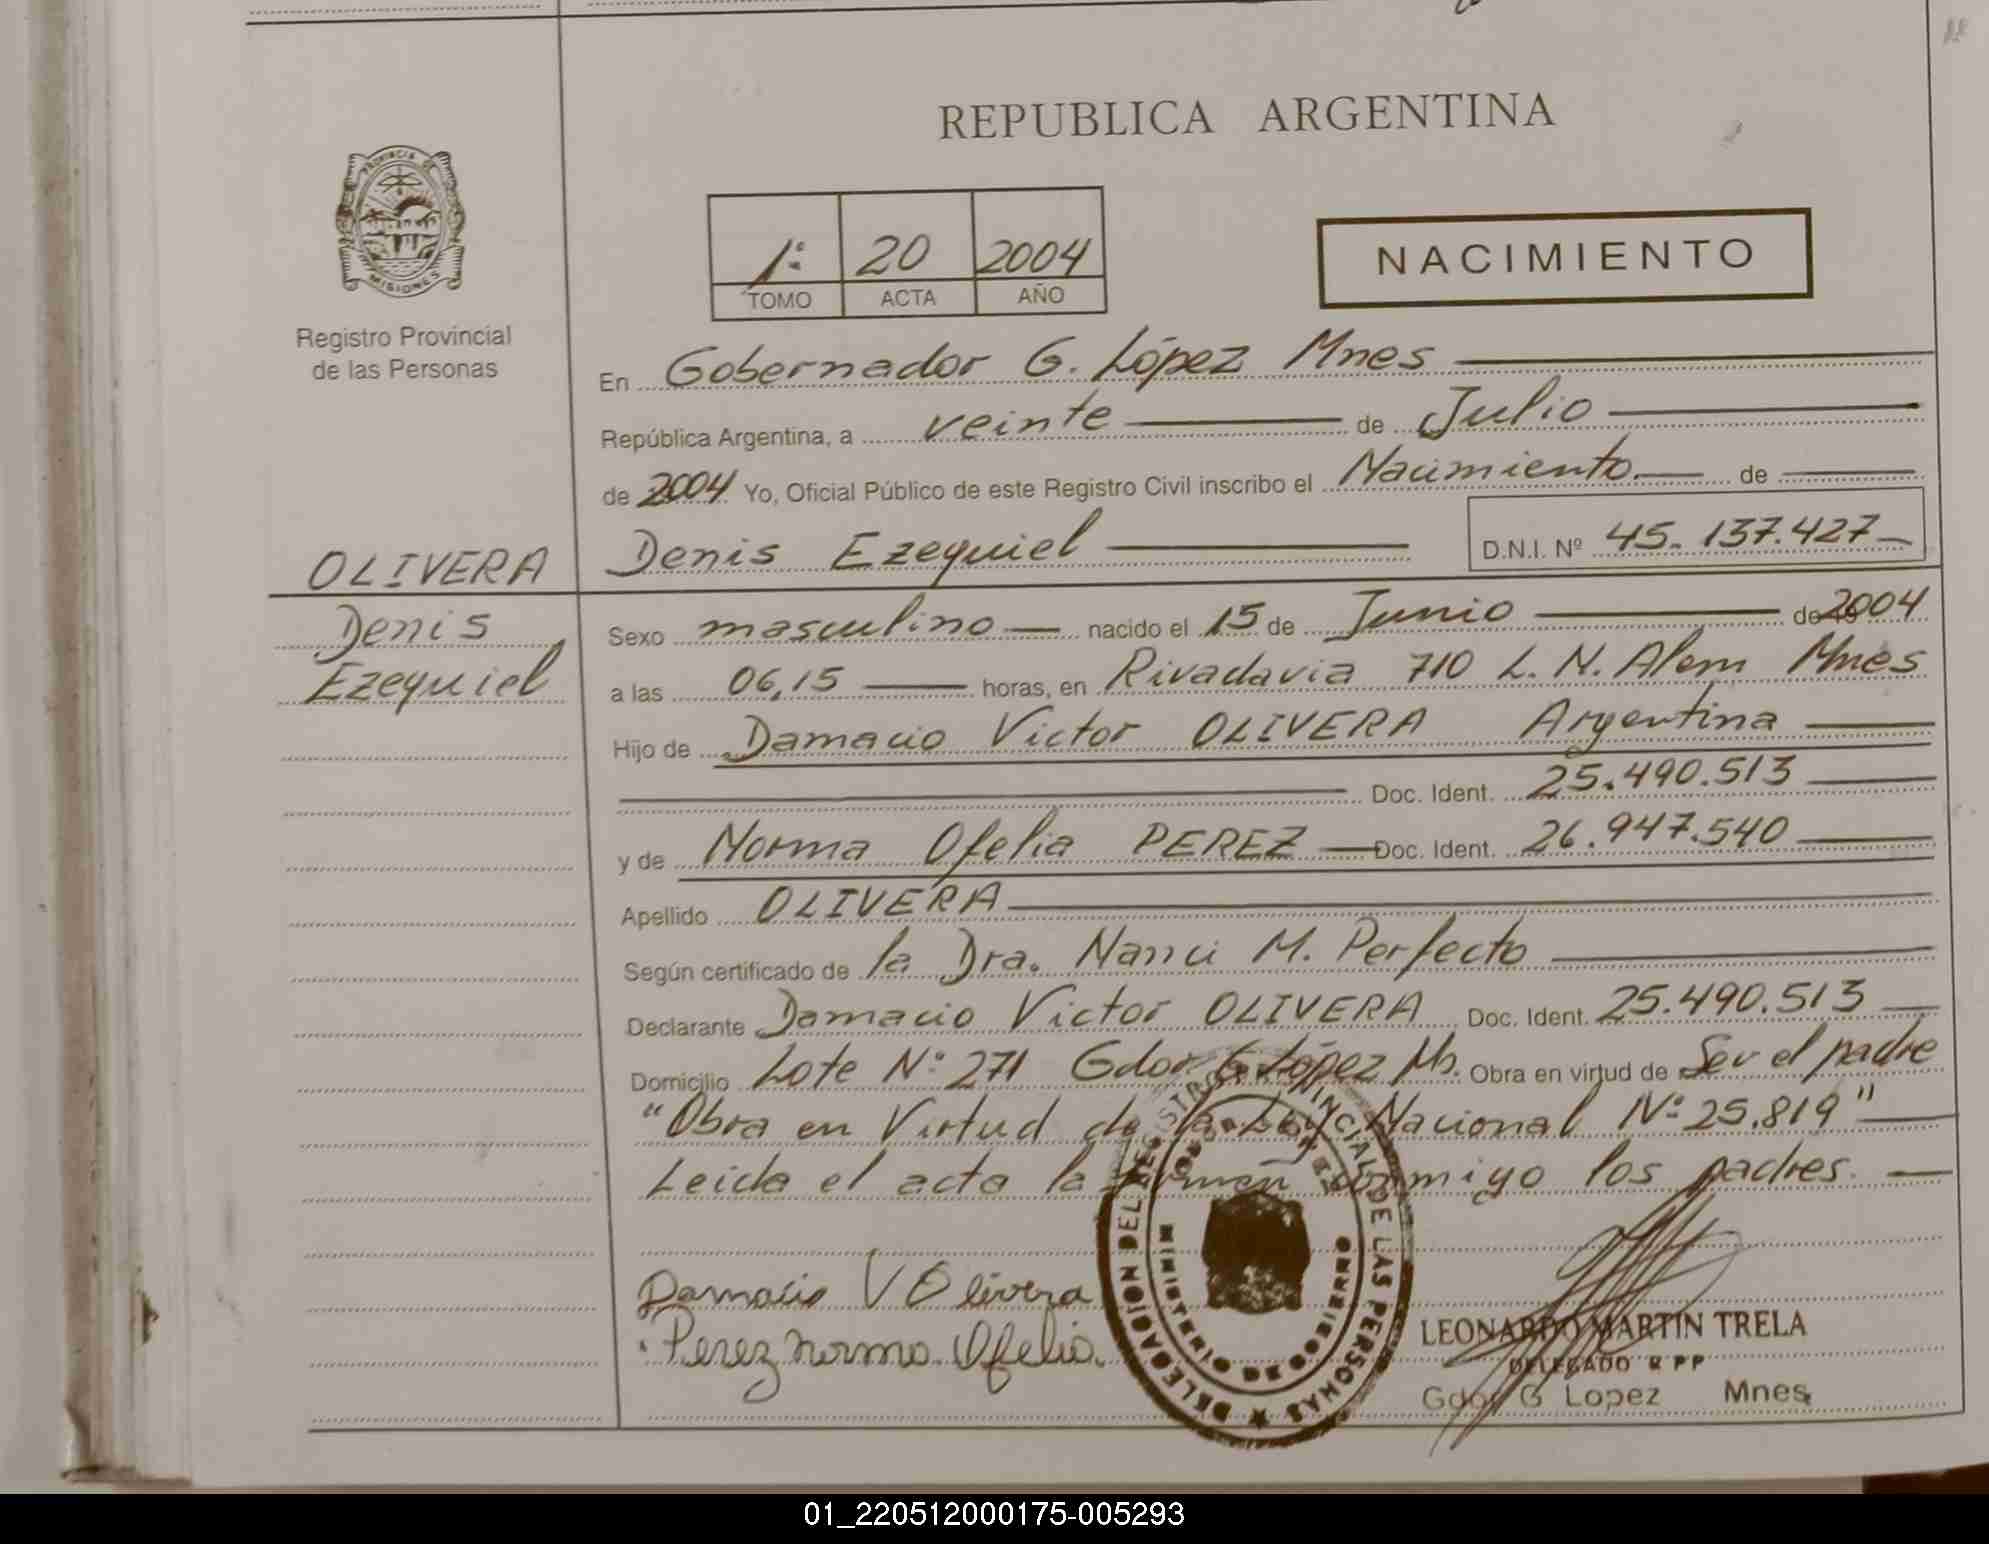 REPUBLICA ARGENTINA
PROVINCIA DE
MISIONES
Registro Provincial
de las Personas
1º 20 2004
TOMO ACTA AÑO
NACIMIENTO
En Gobernador G. López Mnes
República Argentina, a veinte de Julio
de 2004 Yo, Oficial Público de este Registro Civil inscribo el Nacimiento de
Denis Ezequiel D.N.I. Nº 45.137.427
OLIVERA
Denis
Ezequiel
Sexo masculino nacido el 15 de Junio de 2004
a las 06,15 horas, en Rivadavia 710 L. N. Alem Mnes
Hijo de Damacio Victor OLIVERA Argentina
Doc. Ident. 25.490.513
y de Norma Ofelia PEREZ Doc. Ident. 26.947.540
Apellido OLIVERA
Según certificado de la Dra. Nanci M. Perfecto
Declarante Damacio Victor OLIVERA Doc. Ident. 25.490.513
Domicilio Lote Nº 271 Gdor G López Ms. Obra en virtud de Ser el padre
"Obra en Virtud de la Ley Nacional Nº 25.819"
Leida el acta la firman conmigo los padres.
Damacio V Olivera
Perez Norma Ofelia.
DELEGACION DEL REGISTRO PROVINCIAL DE LAS PERSONAS
MINISTERIO DE GOBIERNO
LEONARDO MARTIN TRELA
DELEGADO R P P
Gdor G Lopez Mnes
01_220512000175-005293